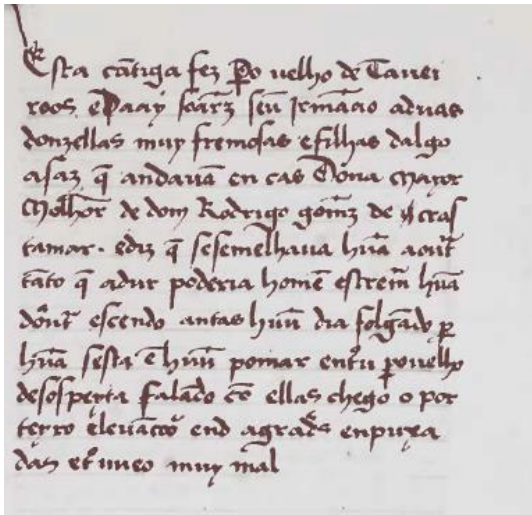 Esta cãtiga fez Po uelho de Tauei
roos e Paay soarz seu Irmãao a duas
donzellas muy fremosas e filhas dalgo
asaz q̃ andauã en cas Dona mayor
molher de dom Rodrigo gomz de cras
tamar. e diz q̃ se semelhaua hũa a out̃
tãto q̃ adur poderia homẽ estremar hũa
dout̃ e seendo antas hũu dia folgãdo p
hũa sesta ẽ hũu pomar entrou po uelho
de sospeyta falãdo cõ ellas chego o por
teyro e leuãtou end a grãdes enpuxa
das e muy mal